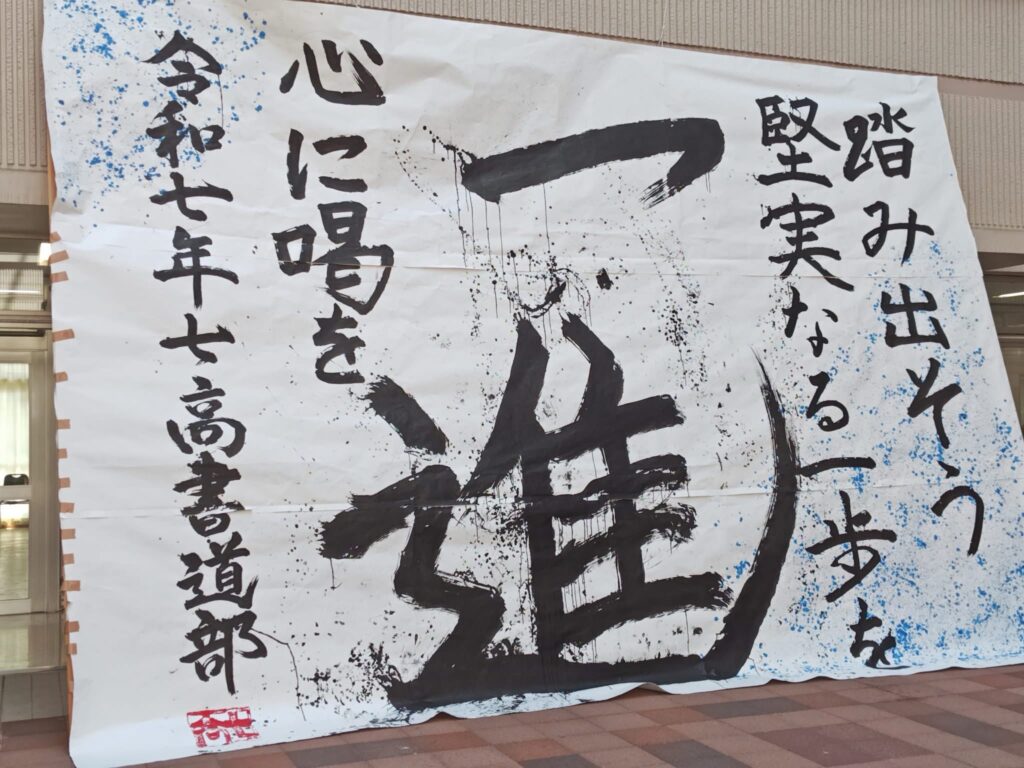 踏み出そう
堅実なる一歩を
一進
心に喝を
令和七年七高書道部